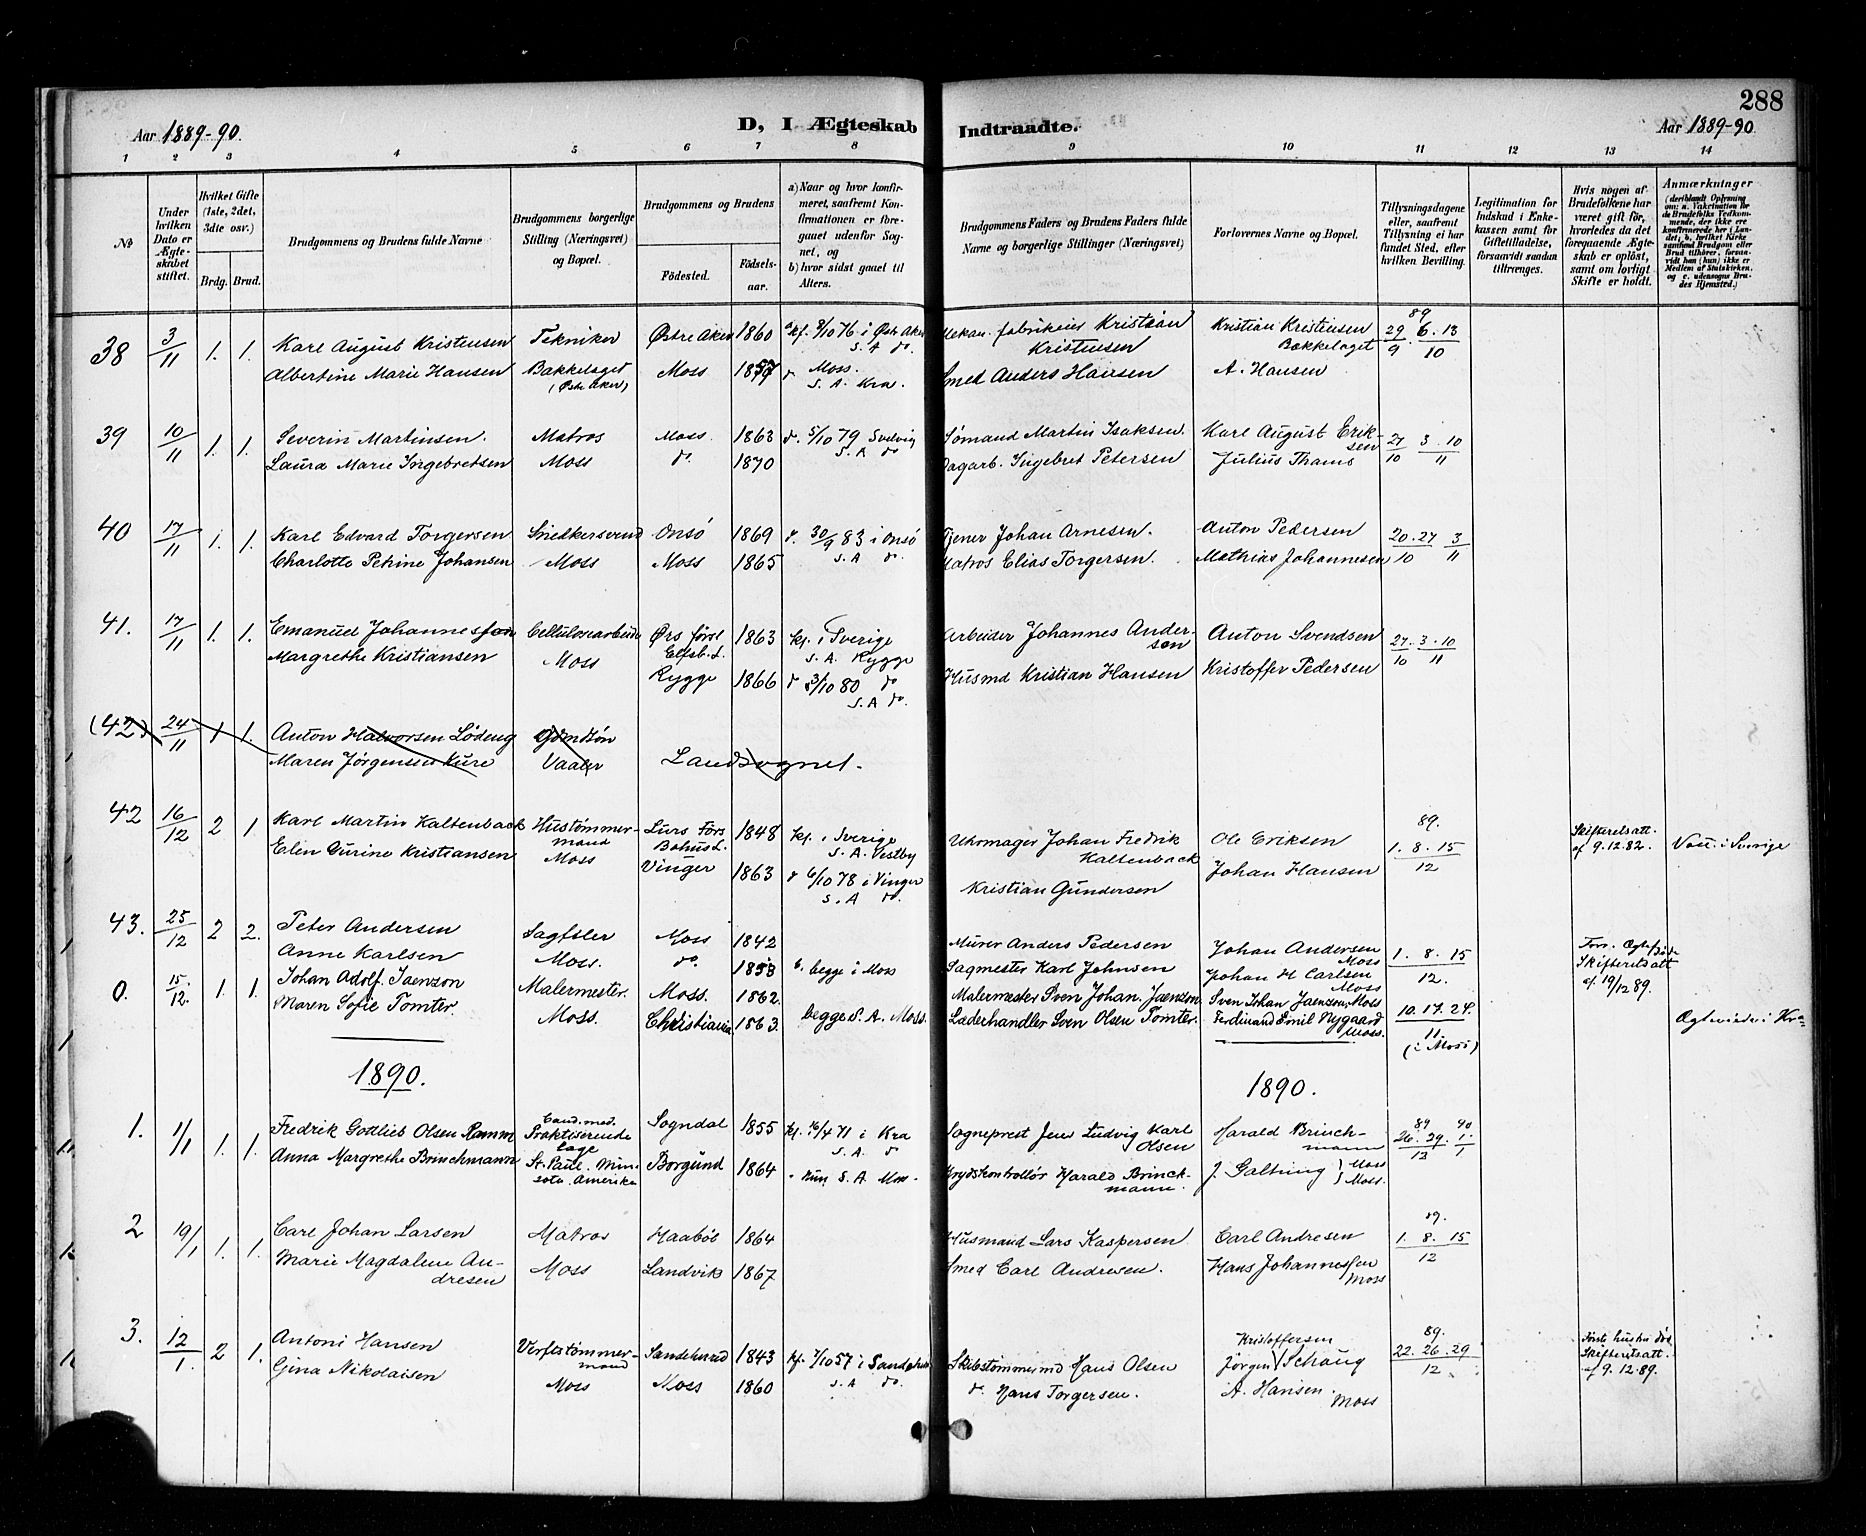 288
Aar 1889-90.
D, I Ægteskab Indtraadte.
Aar 1889-90
1 2 3 4 5 6 7 8 9 10 11 12 13 14
№
Under hvilken Dato er Ægteskabet stiftet.
Hvilket Gifte (1ste, 2det, 3dte osv.)
Brdg. Brud.
Brudgommens og Brudens fulde Navne
Brudgommens borgerlige Stilling (Næringsvei) og Bopæl.
Brudgommens og Brudens
Fødested.
Fødselsaar.
a) Naar og hvor konfirmeret, saafremt Konfirmationen er foregaaet udenfor Sognet, og
b) hvor sidst gaaet til Alters.
Brudgommens Faders og Brudens Faders fulde Navne og borgerlige Stillinger (Næringsvei)
Forlovernes Navne og Bopæl.
Tillysningsdagene eller, saafremt Tillysning ei har fundet Sted, efter hvilken Bevilling.
Legitimation for Indskud i Enkekassen samt for Giftetilladelse, forsaavidt saadan tiltrænges.
Hvis nogen af Brudefolkene har været gift før, hvorledes da det foregaaende Ægteskab er opløst, samt om lovligt Skifte er holdt.
Anmærkninger
38 3/11 1. 1. Karl August Kristensen Tekniker Østre Aker 1860 kf. 8/10 76 i Østr Aker S. A do. Mekan. fabrikeier Kristian Kristensen Kristian Kristensen Bækkelaget 89 29/9 . 6 . 13/10
Albertine Marie Hansen Bækkelaget (Østr Aker) Moss 1857 d Moss. S. A. Kra. Smed Anders Hansen A. Hansen
39 10/11 1. 1. Severin Martinsen. Matros Moss. 1863 d. 5/10 79 Svelvig S. A do Sømand Martin Isaksen. Karl August Eriksen 27/10 3 . 10/11
Laura Marie Ingebretsen Moss do. 1870 Dagarb. Ingebret Petersen Julius Thams
40 17/11 1. 1. Karl Edvard Torgersen Snedkersvend Onsø 1869 d. 30/9 83 i Onsø S. A do. Tjener Johan Arnesen. Anton Pedersen 20.27/10 3/11
Charlotte Petrine Johansen Moss Moss 1865 Matros Elias Torgersen. Mathias Johannesen
41. 17/11 1. 1. Emanuel Johannessen Cellulosearbeider Ørs førs! Elfsb. L. 1863 kf. i Sverige S. A. Rygge Arbeider Johannes Andersen Anton Svendsen 27/10 . 3 . 10/11
Margrethe Kristiansen Moss Rygge 1866 d 3/10 80 do S. A do. Husmd Kristian Hansen Kristoffer Pedersen
(42) 24/11 1 1. Anton Halvorsen Lødeng Gdmdsøn
Maren Jørgensen Kure Vaaler Landsognet.
42 16/12 2 1 Karl Martin Kaltenback Hustømmermand Lurs Førs Bohusl. 1848 kf. i Sverige S. A. Vestby Uhrmager Johan Fredrik Kaltenback Ole Eriksen 89. 1. 8. 15/12 Skifteretsatt. af 9.12.82. Vacc. i Sverige
Elen Gurine Kristiansen Moss Vinger 1863 d 6/10 78 i Vinger S. A do. Kristian Gundersen Johan Hansen
43. 25/12 2 2. Peter Andersen Sagfiler Moss 1842 Murer Anders Pedersen Johan Andersen Moss 1. 8. 15/12. Skifteretsatt af. 19/12 89.
Anne Karlsen Moss. do. 1853 b. begge i Moss Sagmester Karl Johnsen Johan H Carlsen Moss
0. 15/12. 1. 1. Johan Adolf Jaenzon Malermester. Moss. 1862. Malermester Sven Johan. Jaenzon. Sven Johan Jaenzon, Moss 10.17.24./11. (i Moss)
Maren Sofie Tomter. Moss. Christiania 1863. begge S. A. Moss. Læderhandler Sven Olsen Tomter. Ferdinand Emil Nygaard Moss. Ægteviede i Kra-
1890. 1890.
1. 1/1 1. 1. Fredrik Gottlieb Olsen Ramm Cand. med. Praktiserende Læge Sogndal 1855 kf. 16/4 71 i Kra S. A. d Sogneprest Jens Ludvig Karl Olsen Harald Brinchmann 89 26.29/12 90 1/1
Anna Margrethe Brinchmann St. Paul. Minnsota. Amerika Borgund 1864 hun S. A Moss. Krydskontrollør Harald Brinckmann. J. Galtung } Moss } Moss.
2 19/1 1. 1. Carl Johan Larsen Matros Haabøl 1864 Husmand Lars Kaspersen Carl Andresen 89. 1. 8. 15/12
Marie Magdalene Andresen Moss Landvik 1867 Smed Carl Andresen. Hans Johannessen Moss
3. 12/1. 2 1. Antoni Hansen Verftstømmermand Sandeherred 1843 kf. 7/10 57 i Sandeherred S. A do. Skibstømmermd Hans Olsen Jørgen Kristoffersen Schaug 89. 22. 26. 29/12 Første hustru død Skifteretsatt. af 9. 12. 89.
Gina Nikolaisen Moss Moss 1860 do. Hans Torgersen. A. Hansen. Moss